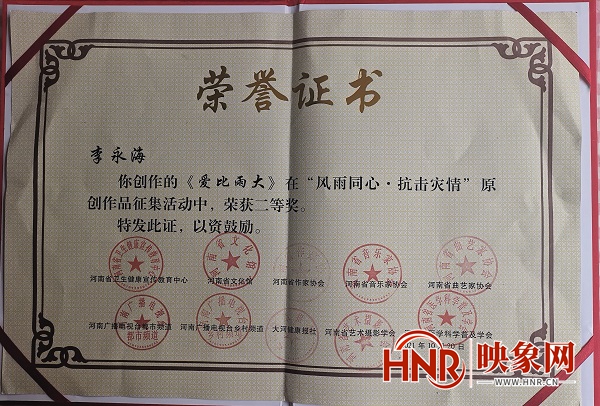 荣誉证书
李永海
你创作的《爱比雨大》在“风雨同心·抗击灾情”原
创作品征集活动中，荣获二等奖。
特发此证，以资鼓励。
河南省卫生健康宣传教育中心 河南省文化馆 河南省作家协会 河南省音乐家协会 河南省曲艺家协会
河南广播电视台都市频道 河南广播电视台乡村频道 大河健康报社 河南省艺术摄影学会 医学科学普及学会
都市频道
21年10月20日
HNR 映象网
WWW.HNR.CN